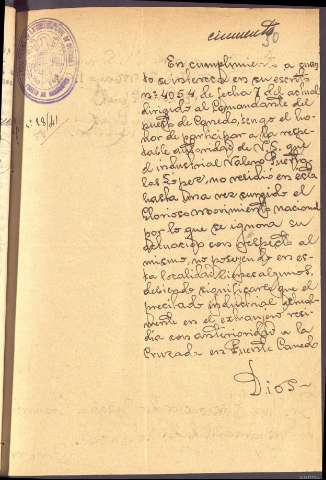 cincuenta
50
nº 19/41
En cumplimiento a cuan
to se interesa en su escrito
nº 4054 de fecha 7 del actual
dirigido al Comandante del
puesto de Canedo, tengo el ho-
nor de participar a la respe-
table autoridad de V.S. que
el industrial Valero
las López, no residio en esta
hasta una vez surgido el
Glorioso Movimiento nacional
por lo que se ignora su
actuacion con respecto al
mismo, no poseyendo en es-
ta localidad bienes algunos,
debiendo significarle que el
precitado industrial actual-
mente en el extranjero resi-
dia con anterioridad a la
Cruzada en Puente Canedo
Dios